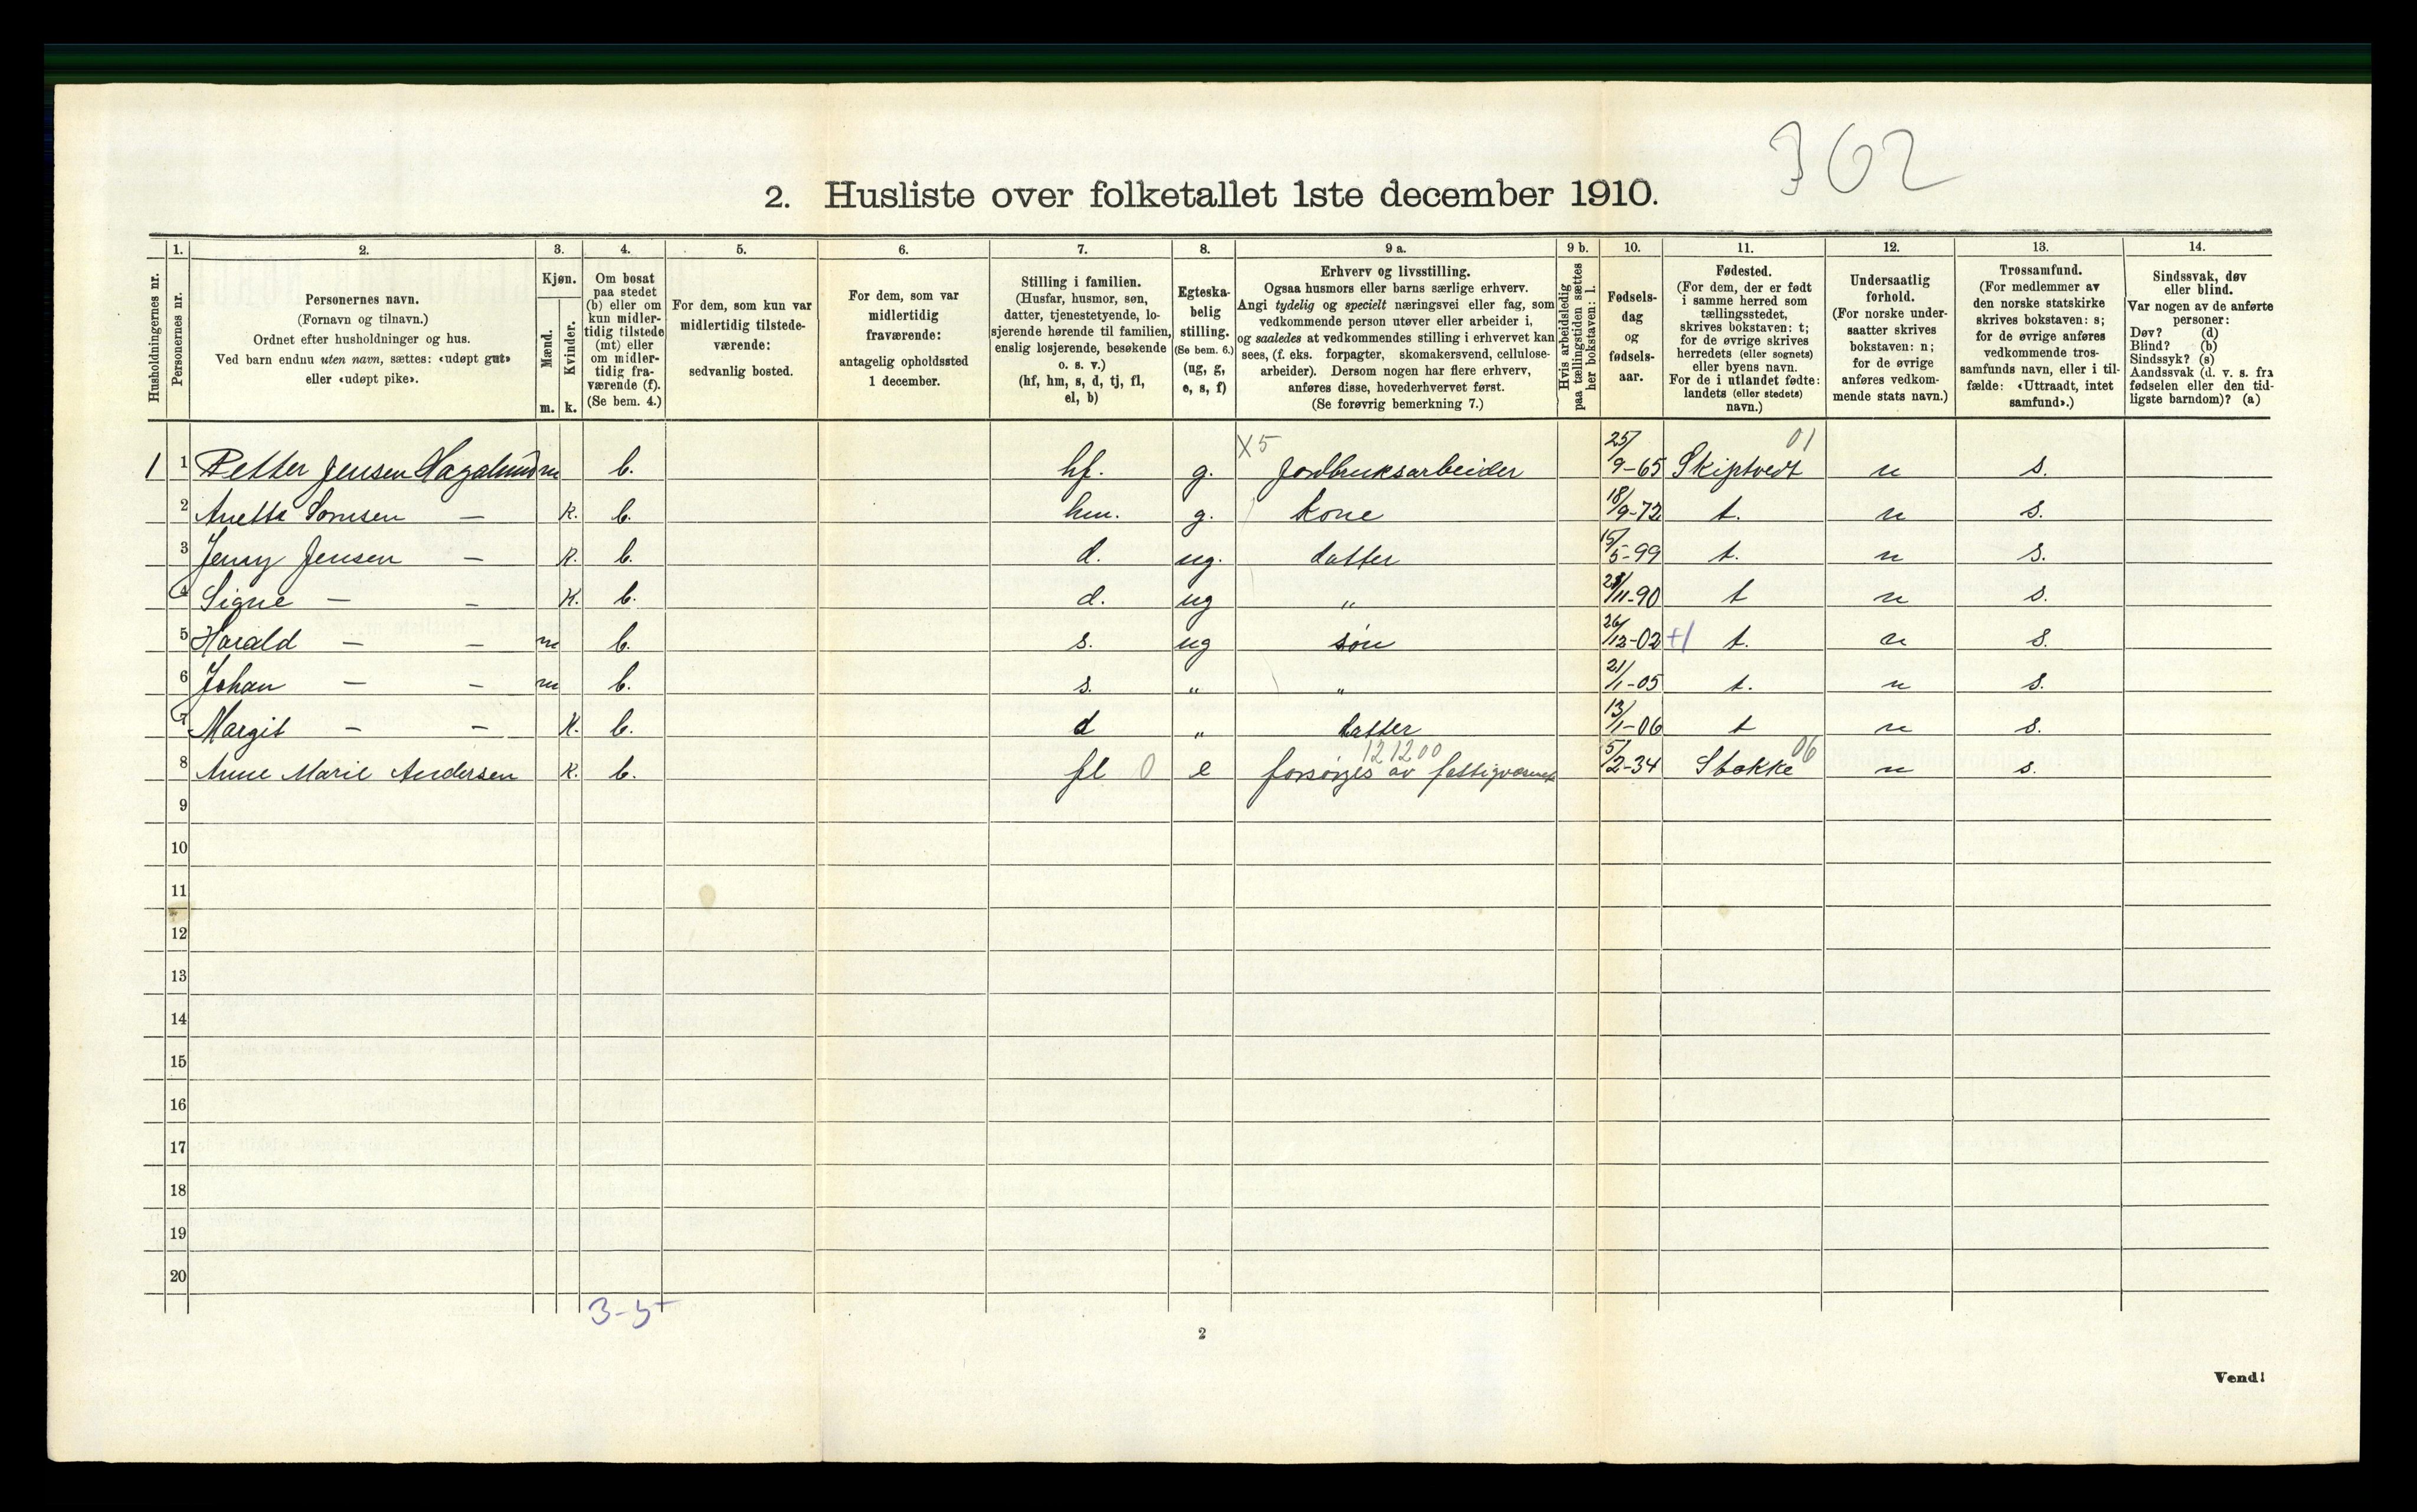 362
2. Husliste over folketallet 1ste december 1910.
Husholdningernes nr.
1.
Personernes nr.
2.
Personernes navn.
(Fornavn og tilnavn.)
Ordnet efter husholdninger og hus.
Ved barn endnu uten navn, sættes: «udøpt gut»
eller «udøpt pike».
3.
Kjøn.
Mænd.
Kvinder.
m. k.
4.
Om bosat
paa stedet
(b) eller om
kun midler-
tidig tilstede
(mt) eller
om midler-
tidig fra-
værende (f).
(Se bem. 4.)
5.
For dem, som kun var
midlertidig tilstede-
værende:
sedvanlig bosted.
6.
For dem, som var
midlertidig
fraværende:
antagelig opholdssted
1 december.
7.
Stilling i familien.
(Husfar, husmor, søn,
datter, tjenestetyende, lo-
sjerende hørende til familien,
enslig losjerende, besøkende
o. s. v.)
(hf, hm, s, d, tj, fl,
el, b)
8.
Egteska-
belig
stilling.
(Se bem. 6.)
(ug, g,
e, s, f)
9 a.
Erhverv og livsstilling.
Ogsaa husmors eller barns særlige erhverv.
Angi tydelig og specielt næringsvei eller fag, som
vedkommende person utøver eller arbeider i,
og saaledes at vedkommendes stilling i erhvervet kan
sees, (f. eks. forpagter, skomakersvend, cellulose-
arbeider). Dersom nogen har flere erhverv,
anføres disse, hovederhvervet først.
(Se forøvrig bemerkning 7.)
9 b.
Hvis arbeidsledig
paa tællingstiden sættes
her bokstaven: l.
10.
Fødsels-
dag
og
fødsels-
aar.
11.
Fødested.
(For dem, der er født
i samme herred som
tællingsstedet,
skrives bokstaven: t;
for de øvrige skrives
herredets (eller sognets)
eller byens navn.
For de i utlandet fødte:
landets (eller stedets)
navn.)
12.
Undersaatlig
forhold.
(For norske under-
saatter skrives
bokstaven: n;
for de øvrige
anføres vedkom-
mende stats navn.)
13.
Trossamfund.
(For medlemmer av
den norske statskirke
skrives bokstaven: s;
for de øvrige anføres
vedkommende tros-
samfunds navn, eller i til-
fælde: «Uttraadt, intet
samfund».)
14.
Sindssvak, døv
eller blind.
Var nogen av de anførte
personer:
Døv? (d)
Blind? (b)
Sindssyk? (s)
Aandssvak (d. v. s. fra
fødselen eller den tid-
ligste barndom)? (a)
1 1 Petter Jensen Hagalund m b. hf. g. X5 Jordbruksarbeider 25/9-65 Skiptvedt 01 n s.
2 Anette — k. b. hm. g. kone 18/9-72 t. n s.
3 Jenny Jensen — k. b. d. ug. datter 15/5-99 t. n s.
4 Signe — — k. b. d. ug " /11-90 t n s.
5 Harald — — m b. s. ug søn 26/12-02 +1 t. n s.
6 Johan — — m b. s. " " 21/1-05 t. n s.
7 Margit — — k. b. d " datter 13/1-06 t n s.
8 Anne Marie Andersen k. b. fl 0 e 121200 forsørges av fattigvæsenet 5/2-34 Stokke 06 n s.
9
10
11
12
13
14
15
16
17
18
19
20
3-5
2
Vend!